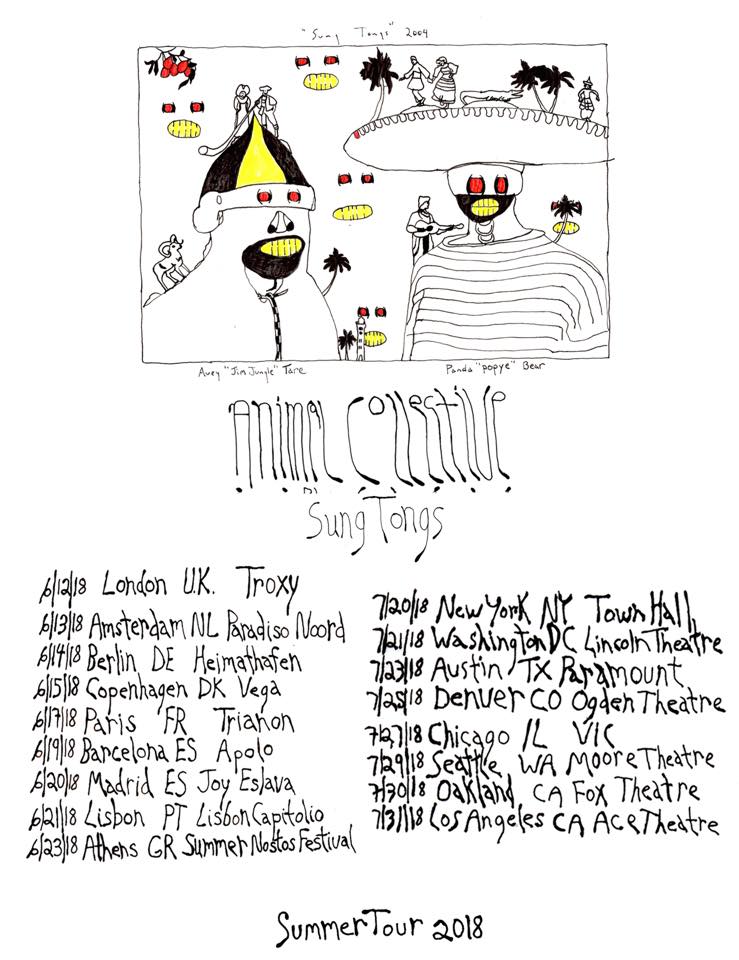 "Sung Tongs" 2004
Avey "Jim Jungle" Tare
Panda "Popye" Bear
Animal Collective
Sung Tongs
6/12/18 London U.K. Troxy
6/13/18 Amsterdam NL Paradiso Noord
6/14/18 Berlin DE Heimathafen
6/15/18 Copenhagen DK Vega
6/17/18 Paris FR Trianon
6/19/18 Barcelona ES Apolo
6/20/18 Madrid ES Joy Eslava
6/21/18 Lisbon PT Lisbon Capitolio
6/23/18 Athens GR Summer Nostos Festival
7/20/18 New York NY Town Hall,
7/21/18 Washington DC Lincoln Theatre
7/23/18 Austin TX Paramount
7/25/18 Denver CO Ogden Theatre
7/27/18 Chicago IL VIC
7/29/18 Seattle WA Moore Theatre
7/30/18 Oakland CA Fox Theatre
7/31/18 Los Angeles CA Ace Theatre
Summer Tour 2018